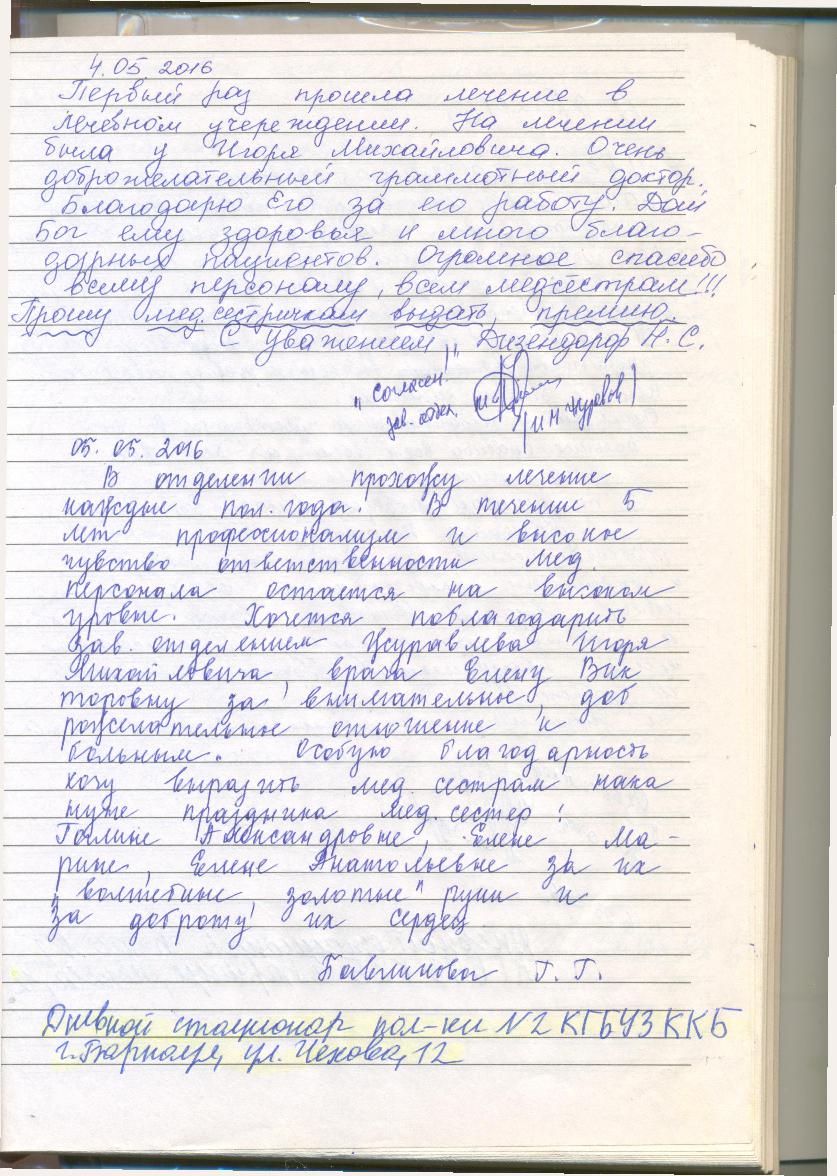 4.05.2016
Первый раз прошла лечение в
лечебном учереждении. На лечении
была у Игоря Михайловича. Очень
доброжелательный граммотный доктор.
Благодарю Его за его работу. Дай
Бог ему здоровья и много благо-
дарных пациентов. Огромное спасибо
всему персоналу, всем медсёстрам!!!
Прошу мед.сестричкам выдать премию.
С Уважением Дизендорф Н.С.
"Согласен!"
зав. отдел. (И М Журавлёв)
05.05.2016
В отделении прохожу лечение
каждые пол.года. В течении 5
лет професионализм и высокое
чувство ответственности мед.
персонала остается на высоком
уровне. Хочется поблагодарить
зав. отделением Журавлева Игоря
Михайловича, врача Елену Вик
торовну за внимательное, доб
рожелательное отношение к
больным. Особую благодарность
хочу выразить мед. сестрам нака
нуне праздника мед. сестер!
Галине Александровне, Елене, Ма-
рине, Елене Анатольевне за их
"волшебные, золотые" руки и
за доброту их сердец
Бавлинова Г.Г.
Дневной стационар пол-ки N2 КГБУЗ ККБ
г.Барнаул, ул. Чехова, 12